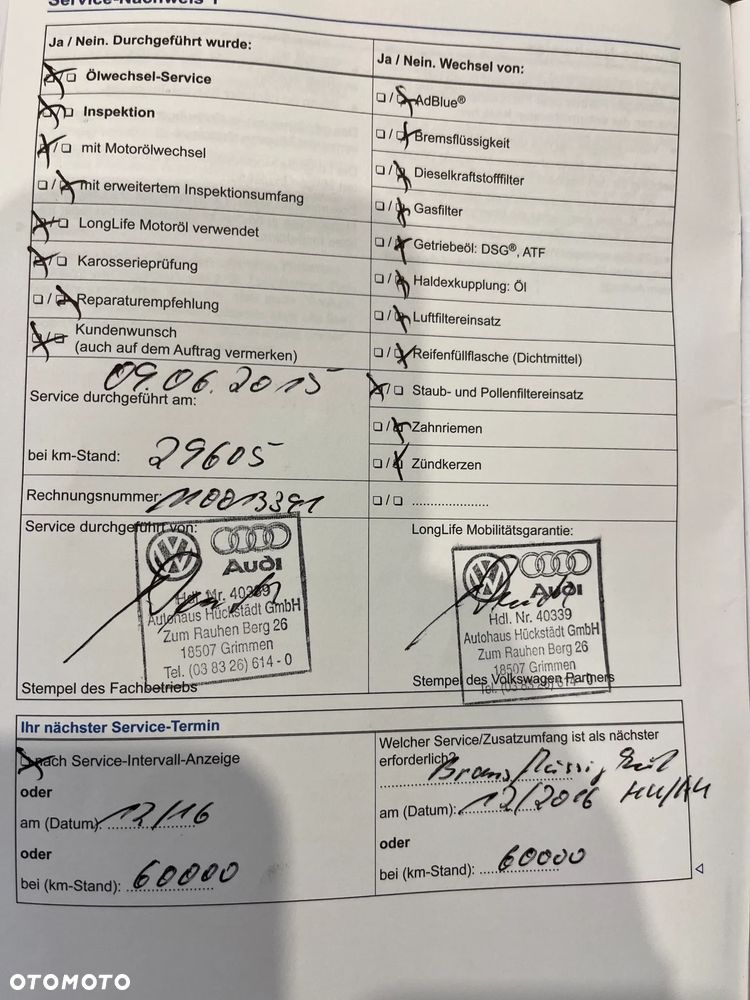 Service-Nachweis 1
Ja / Nein. Durchgeführt wurde:
Ölwechsel-Service
Inspektion
mit Motorölwechsel
mit erweitertem Inspektionsumfang
LongLife Motoröl verwendet
Karosserieprüfung
Reparaturempfehlung
Kundenwunsch
(auch auf dem Auftrag vermerken)
09.06.2015
Service durchgeführt am:
bei km-Stand: 29605
Rechnungsnummer: 110013391
Service durchgeführt von:
Audi
Hdl. Nr. 40339
Autohaus Hückstädt GmbH
Zum Rauhen Berg 26
18507 Grimmen
Tel. (03 83 26) 614 - 0
Stempel des Fachbetriebs
Ja / Nein. Wechsel von:
AdBlue®
Bremsflüssigkeit
Dieselkraftstofffilter
Gasfilter
Getriebeöl: DSG®, ATF
Haldexkupplung: Öl
Luftfiltereinsatz
Reifenfüllflasche (Dichtmittel)
Staub- und Pollenfiltereinsatz
Zahnriemen
Zündkerzen
LongLife Mobilitätsgarantie:
Audi
Hdl. Nr. 40339
Autohaus Hückstädt GmbH
Zum Rauhen Berg 26
18507 Grimmen
Tel. (03 83 26) 614 - 0
Stempel des Volkswagen Partners
Ihr nächster Service-Termin
nach Service-Intervall-Anzeige
oder
am (Datum): 12/16
oder
bei (km-Stand): 60000
Welcher Service/Zusatzumfang ist als nächster
erforderlich?
am (Datum): 12/2016 HU/AU
oder
bei (km-Stand): 60000
OTOMOTO